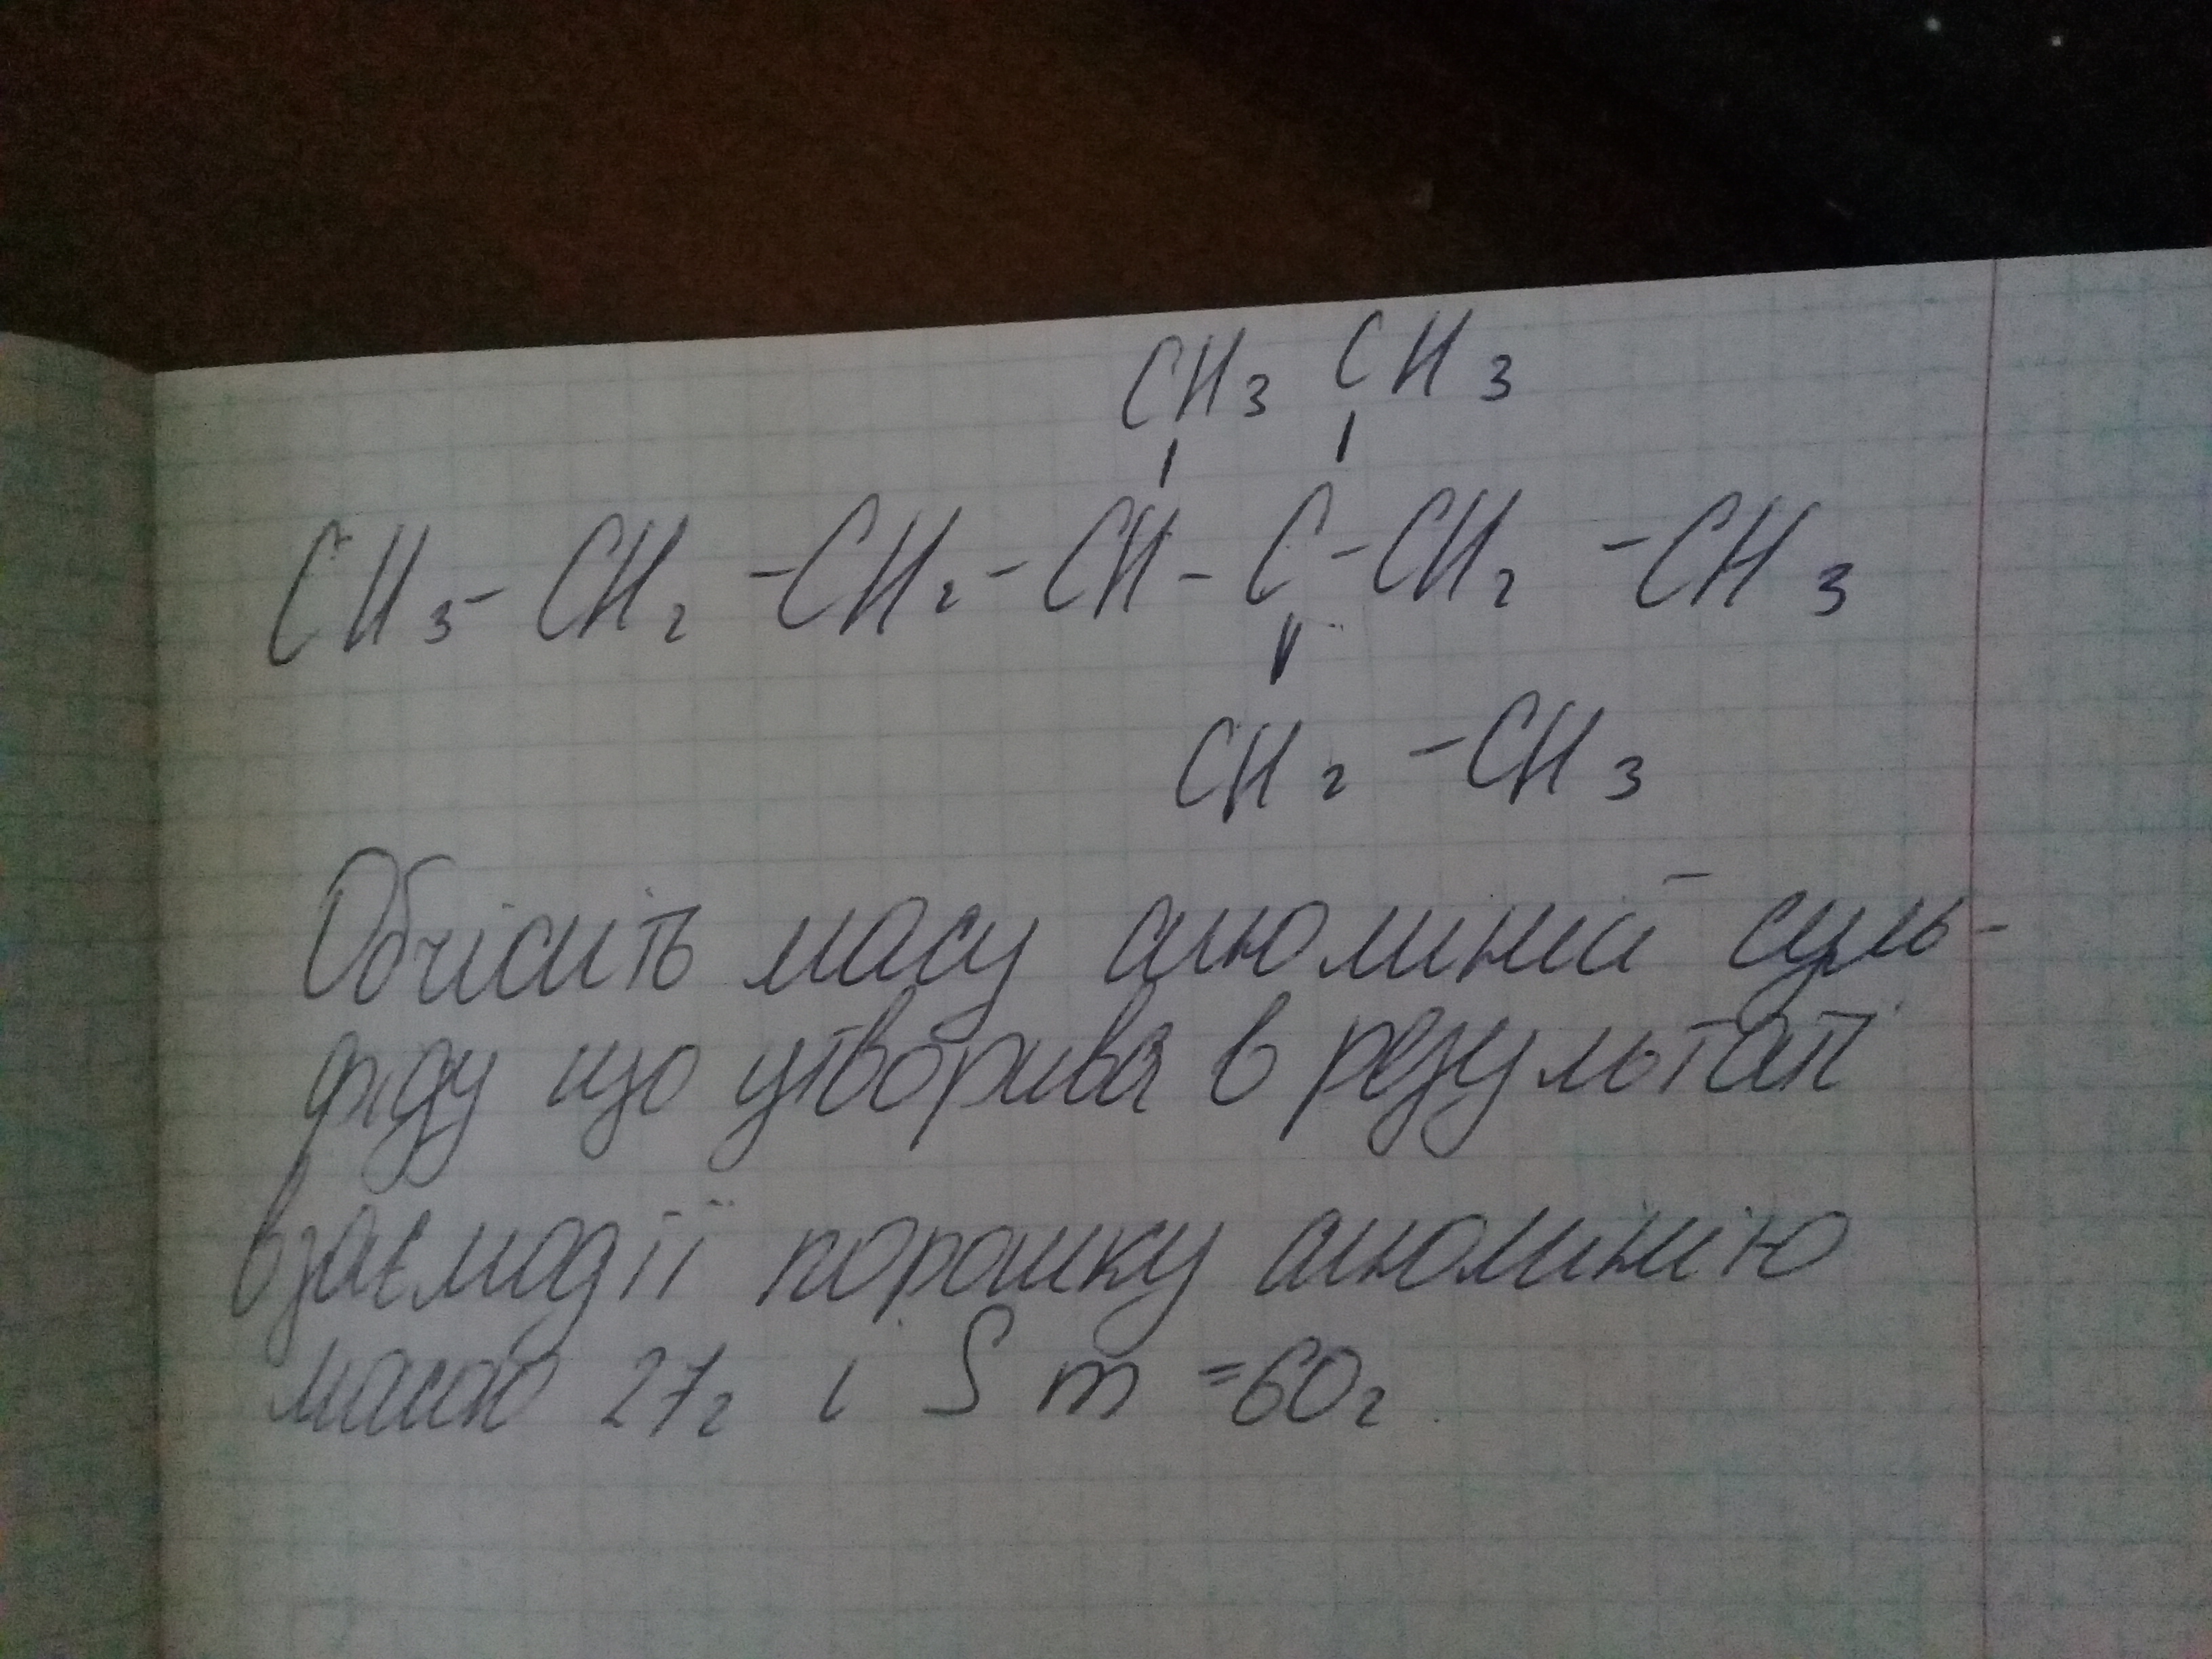 CH3 CH3
CH3 - CH2 - CH2 - CH - C - CH2 - CH3
CH2 - CH3
Обчісить масу алюминій суль-
фіду що утворився в результаті
взаємодії порошку алюмінію
масою 27г і S m =60г.